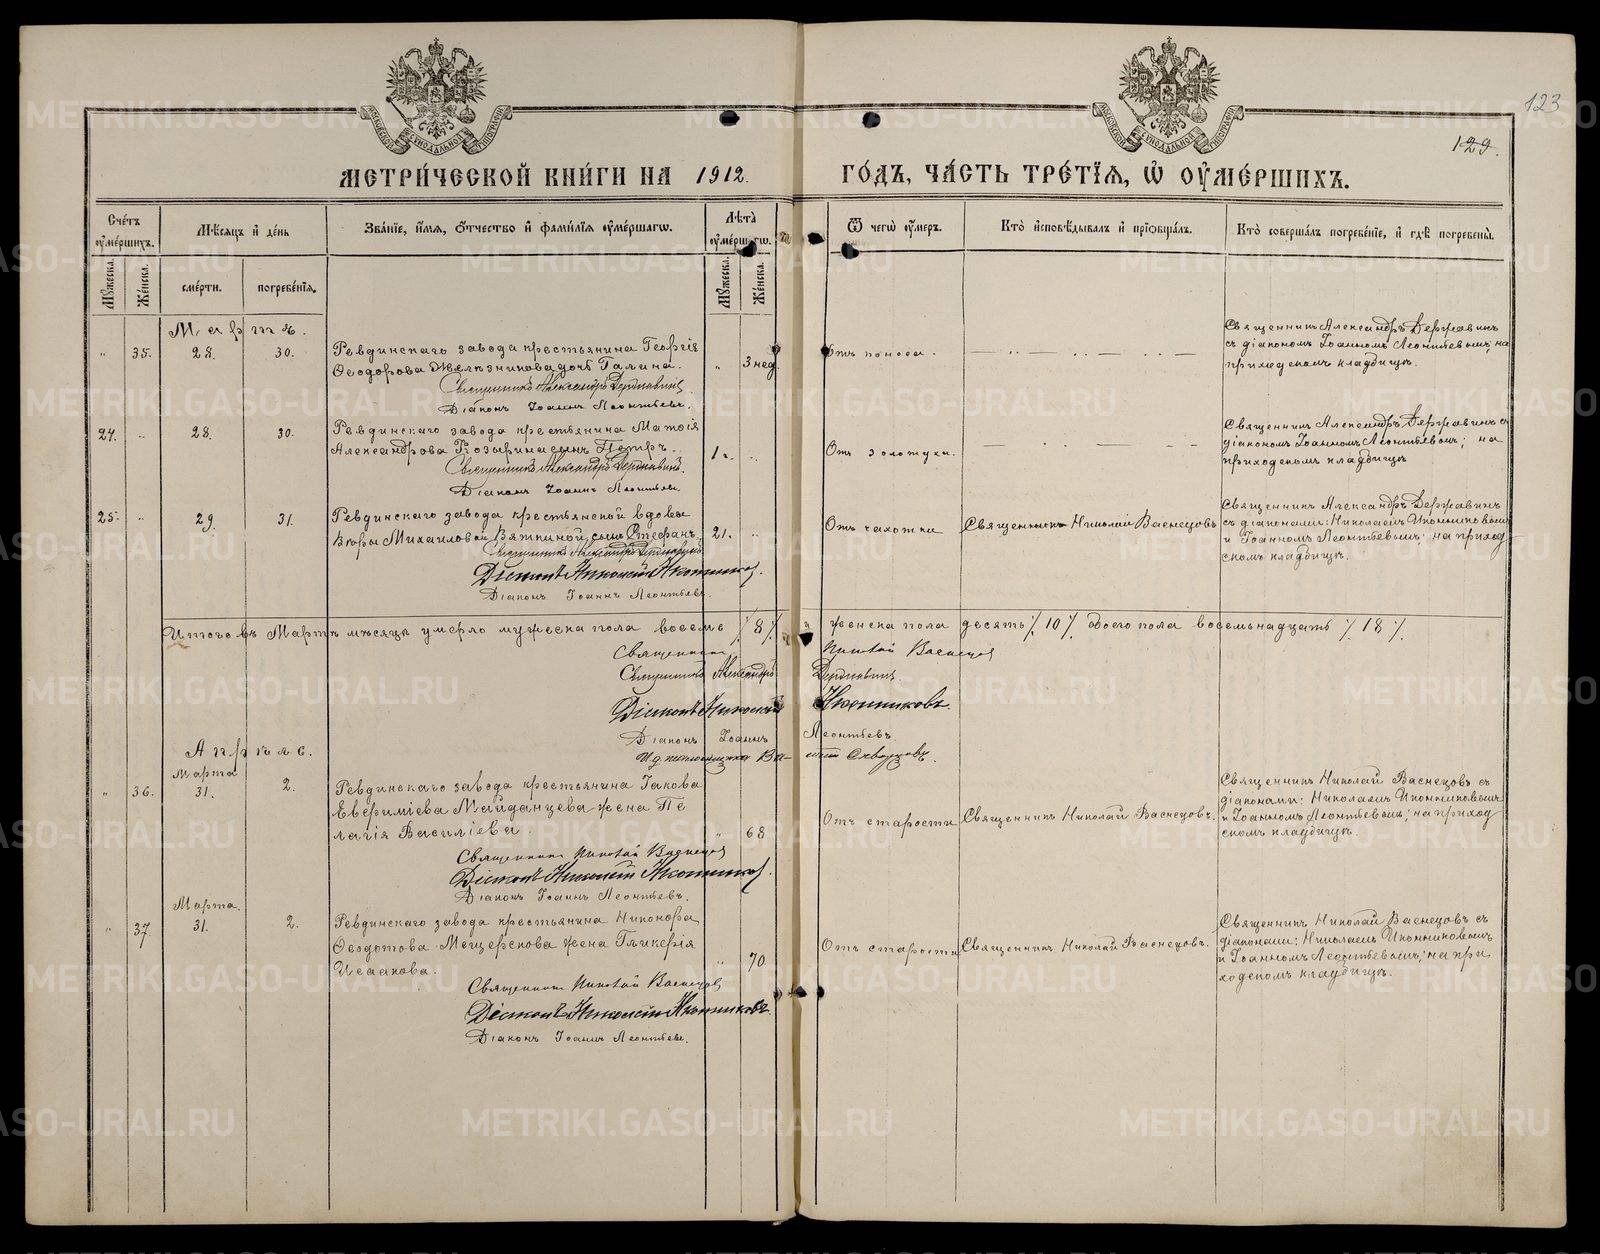 МОСКОВСКОЙ СѴНОДАЛЬНОЙ ТИПОГРАФІИ
МОСКОВСКОЙ СѴНОДАЛЬНОЙ ТИПОГРАФІИ
123
129.
МЕТРИ́ЧЕСКОЙ КНИ́ГИ НА 1912. ГО́ДЪ, ЧА́СТЬ ТРЕ́ТІѦ, Ѡ҆ ОУ҆МЕ́РШИХЪ.
Сче́тъ оу҆ме́ршихъ.
Мѣ́сѧцъ и҆ де́нь
Зва́нїе, и҆́мѧ, ѻ҆́тчество и҆ фами́лїѧ оу҆ме́ршагѡ.
Лѣ́та оу҆ме́ршагѡ.
Ѿ чегѡ̀ оу҆́меръ.
Кто̀ и҆сповѣ́дывалъ и҆ прїѡбща́лъ.
Кто̀ соверша́лъ погребе́нїе, и҆ гдѣ̀ погребены̀.
Мꙋ́жеска.
Же́нска.
сме́рти.
погребе́нїѧ.
Мꙋ́жеска.
Же́нска.
Мартъ.
" 35. 28. 30. Ревдинскаго завода крестьянина Георгія
Ѳеодорова Желѣзникова дочь Галина. " 3 нед.
Священникъ Александръ Державинъ
Діаконъ Іоаннъ Леонтьевъ.
Отъ поноса.
Священникъ Александръ Державинъ
съ діакономъ Іоанномъ Леонтьевымъ; на
приходскомъ кладбищѣ.
24. " 28. 30. Ревдинскаго завода крестьянина Матѳія
Александрова Козырина сынъ Петръ. 1 г. "
Священникъ Александръ Державинъ.
Діаконъ Іоаннъ Леонтьевъ.
Отъ золотухи.
Священникъ Александръ Державинъ съ
діакономъ Іоанномъ Леонтьевымъ; на
приходскомъ кладбищѣ
25. " 29. 31. Ревдинскаго завода крестьянской вдовы
Михаиловой Вяткиной сынъ Стефанъ. 21. "
Священникъ Александръ Державинъ
Діаконъ Николай Иконниковъ.
Діаконъ Іоаннъ Леонтьевъ.
Отъ чахотки
Священникъ Николай Васнецовъ
Священникъ Александръ Державинъ
съ діаконами: Николаемъ Иконниковымъ
и Іоанномъ Леонтьевымъ; на приход-
скомъ кладбищѣ.
Итого въ Мартѣ мѣсяцѣ умерло мужеска пола восемь /8/, женска пола десять /10/, обоего пола восемьнадцать /18/.
Священникъ Николай Васнецовъ
Священникъ Александръ Державинъ.
Діаконъ Николай Иконниковъ.
Діаконъ Іоаннъ Леонтьевъ.
И. д. псаломщика
Апрѣль.
Марта
" 36. 31. 2. Ревдинскаго завода крестьянина Іакова
Евфиміева Майданцева жена Пе
лагія Василіева. " 68
Священникъ Николай Васнецовъ
Діаконъ Николай Иконниковъ.
Діаконъ Іоаннъ Леонтьевъ.
Отъ старости
Священникъ Николай Васнецовъ.
Священникъ Николай Васнецовъ съ
діаконами: Николаемъ Иконниковымъ
и Іоанномъ Леонтьевымъ; на приход
скомъ кладбищѣ.
Марта.
" 37. 31. 2. Ревдинскаго завода крестьянина Никонора
Ѳеодотова Мещерскова жена Гликерія
Исаакова. " 70
Священникъ Николай Васнецовъ
Діаконъ Николай Иконниковъ.
Діаконъ Іоаннъ Леонтьевъ.
Отъ старости
Священникъ Николай Васнецовъ.
Священникъ Николай Васнецовъ съ
діаконами: Николаемъ Иконниковымъ
и Іоанномъ Леонтьевымъ; на при
ходскомъ кладбищѣ.
METRIKI.GASO-URAL.RU